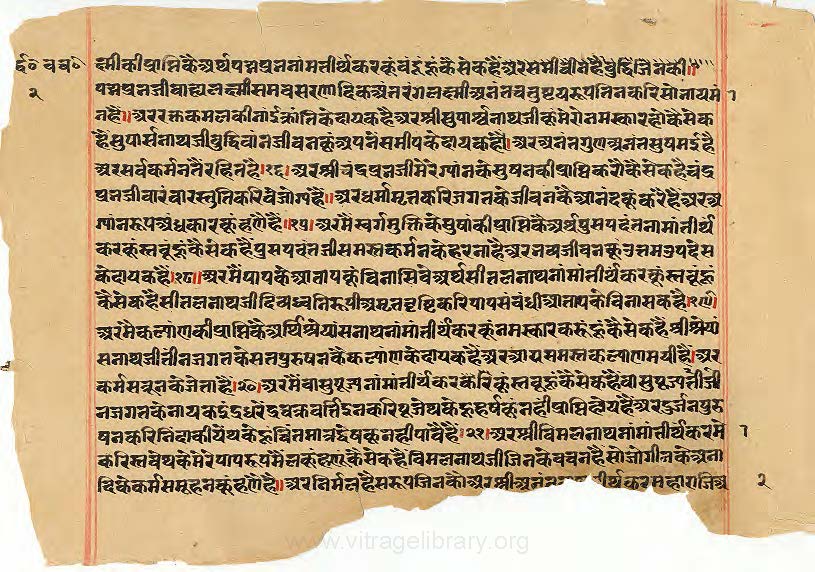 ष्मी की प्राप्ति कै अर्थ पद्मप्रभ नांमा तीर्थंकर कूं वंदूं हूं कैसे क हैं अर समीचीन है बुद्धि जिन की॥
पद्मप्रभजी बाह्य लक्ष्मी समवसरणादिक अंतरंग लक्ष्मी अनंत चतुष्टय रूप तिन करि सोभायमां १
न है॥ अर रक्त कमल की नांई क्रांति के दायक है अर श्री सुपार्श्वनाथजी कूं मेरो नमस्कार होऊ कैसे क
है सुपार्सनाथजी बुद्धिवांन जीवन कूं अपने समीप के दायक है॥ अर अनंत गुण अनंत सुषमई है
अर सर्व कर्मन तैं रहित है।१६। अर श्री चंद्रप्रभजी मेरे ग्यांन के सुष की प्राप्ति करौ कैसे क है चंद्र
प्रभजी वारंवार स्तुति करिवे जोग्य हैं॥ अर धर्मामृत करि जगत के जीवन कै आनंद कूं करे है अर अ
ग्यांन रूप अंधकार कूं हणै है॥१७। अर मैं स्वर्ग मुक्ति के सुषां की प्राप्ति कै अर्थ पुसपदंत नांमा तीर्थं
कर कूं स्तवूं हूं कैसे क है पुसपदंतजी समस्त कर्मन के हरता है अर भव जीवन कूं उत्तम उपदेस
के दायक है।१८॥ अर मैं पाप के आताप कूं विनासिवे अर्थ सीतलनाथ नांमा तीर्थंकर कूं स्तवूं हूं
कैसे क है सीतलनाथजी दिव्यध्वनि रूपी अमृत वृष्टि करि पाप संबंधी आताप के विनासक है।१९।
अर मैं कल्याण की प्राप्ति कै अर्थि श्रेयांसनाथ नांमा तीर्थंकर कूं नमस्कार करूं हूं कैसे क है श्रीश्रेयां
सनाथजी तीन जगत के सतपुरुषन कै कल्याण के दायक है अर आप समस्त कल्याणमयी है। अर
कर्म सत्रून के जेता है।२०। अर मैं वासुपूज्य नांमा तीर्थंकर कूं स्तवूं हूं कैसे क है वासुपूज्य तीजी
न जगत के नायक इंद्र धरेंद्र चक्रवर्ति तिन करि पूजे थके हूं हर्ष कूं नही प्राप्ति होय है अर दुर्जन पुरु
षन करि निंदा कीये थके हूं किंचित मात्र द्वेष कूं नही पावै है।२१। अर श्री विमलनाथ नांमा तीर्थंकर मे १
करि स्तवे थके मेरे पाप रूप मैल कूं हणै कैसे क है विमलनाथजी जिन के वचन है सो जोगीन के अना
दि के कर्म समूहन कूं हणै है॥ अर निर्मल है सरूप जिन कौ अर श्री अनंत तीर्थंकर महाराजि अ
२
२
www.vitragelibrary.org